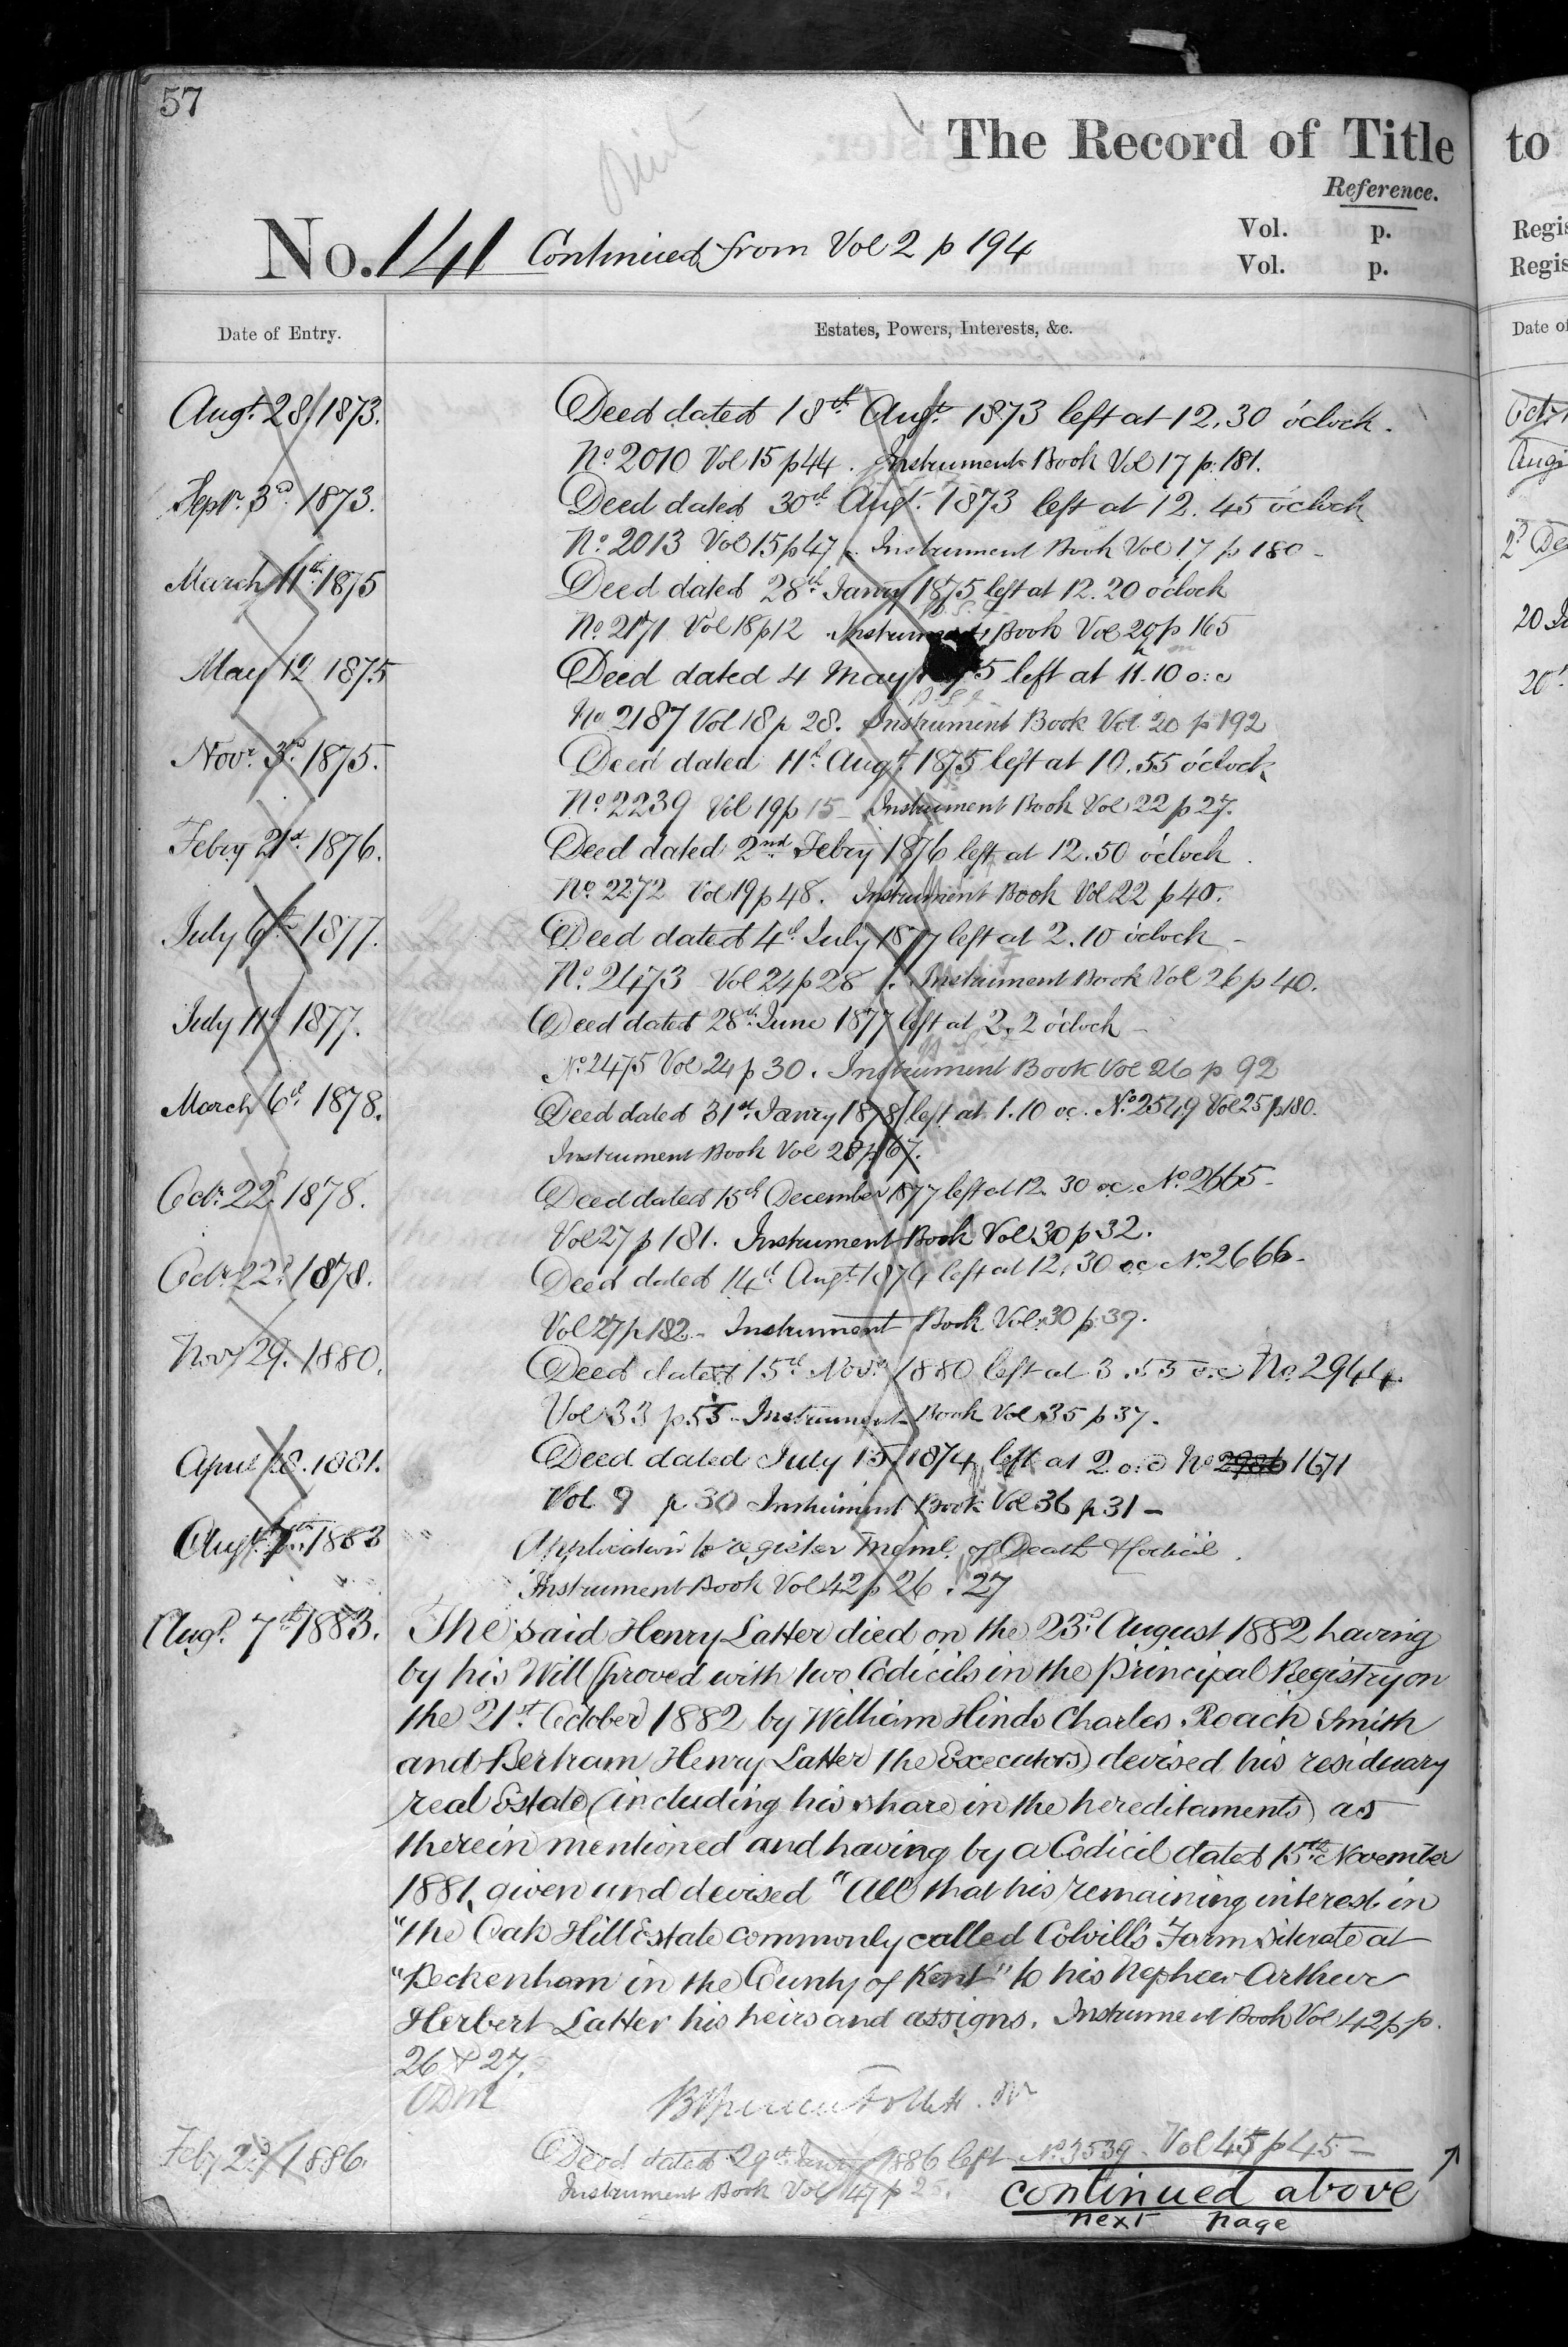 57
The Record of Title
to
Reference.
Vol. p.
Vol. p.
Regis
Regis
No. 141 Continued from Vol 2 p 194
Date of Entry.
Estates, Powers, Interests, &c.
Date of
Augt. 28/1873. Deed dated 18th Augt. 1873 left at 12.30 o'clock.
No. 2010 Vol 15 p 44. Instrument Book Vol 17 p. 181.
Septr. 3d 1873. Deed dated 30th Augt. 1873 left at 12.45 o'clock
No. 2013 Vol 15 p 47 - Instrument Book Vol 17 p 180 -
March 11th 1875 Deed dated 28th Janry 1875 left at 12.20 o'clock
No. 2171 Vol 18 p 12 Instrument Book Vol 20 p 165
May 12 1875 Deed dated 4 May 5 left at 11.10 o:c
No 2187 Vol 18 p 28. Instrument Book Vol 20 p 192
Novr. 3rd 1875. Deed dated 11th Augt. 1875 left at 10.55 o'clock
No. 2239 Vol 19 p 15 - Instrument Book Vol 22 p 27.
Febry 21st 1876. Deed dated 2nd Febry 1876 left at 12.50 o'clock.
No. 2272 Vol 19 p 48. Instrument Book Vol 22 p 40.
July 6th 1877. Deed dated 4th July 1877 left at 2.10 o'clock -
No. 2473 Vol 24 p 28. Instrument Book Vol 26 p 40.
July 11th 1877. Deed dated 28th June 1877 left at 2.2 o'clock -
No. 2475 Vol 24 p 30. Instrument Book Vol 26 p 92
March 6th 1878. Deed dated 31st Janry 1878 left at 1.10 oc. No. 2549 Vol 25 p 180.
Instrument Book Vol 28 p 67.
Octr. 22d 1878. Deed dated 15th December 1877 left at 12.30 oc. No. 2665 -
Vol 27 p 181. Instrument Book Vol 30 p 32.
Octr. 22d 1878. Deed dated 14th Augt 1874 left at 12.30 oc No. 2666 -
Vol 27 p 182 - Instrument Book Vol. 30 p. 39.
Novr 29. 1880. Deed dated 15th Novr. 1880 left at 3.55 o.c No. 2944
Vol 33 p 55 - Instrument Book Vol 35 p 37.
April 28. 1881. Deed dated July 15 1874 left at 2 o.c No 2986 1671
Vol. 9 p 30 Instrument Book Vol 36 p 31 -
Augt. 7th 1883 Application to register Mgml. of Death & Codicil.
Instrument Book Vol 42 p 26. 27
Augt. 7th 1883. The said Henry Latter died on the 23d August 1882 having
by his Will (proved with two Codicils in the Principal Registry on
the 21st October 1882 by William Hinds Charles Roach Smith
and Bertram Henry Latter the Executors) devised his residuary
real Estate (including his share in the hereditaments) as
therein mentioned and having by a Codicil dated 15th November
1881, given and devised "All that his remaining interest in
"the Oak Hill Estate commonly called Colvill's Farm situate at
"Beckenham in the County of Kent" to his Nephew Arthur
Herbert Latter his heirs and assigns. Instrument Book Vol 42 pp.
26 & 27.
Feby 2d 1886. Deed dated 29th Janry 1886 left No. 3539 Vol 45 p 45 -
Instrument Book Vol 47 p
continued above
next page